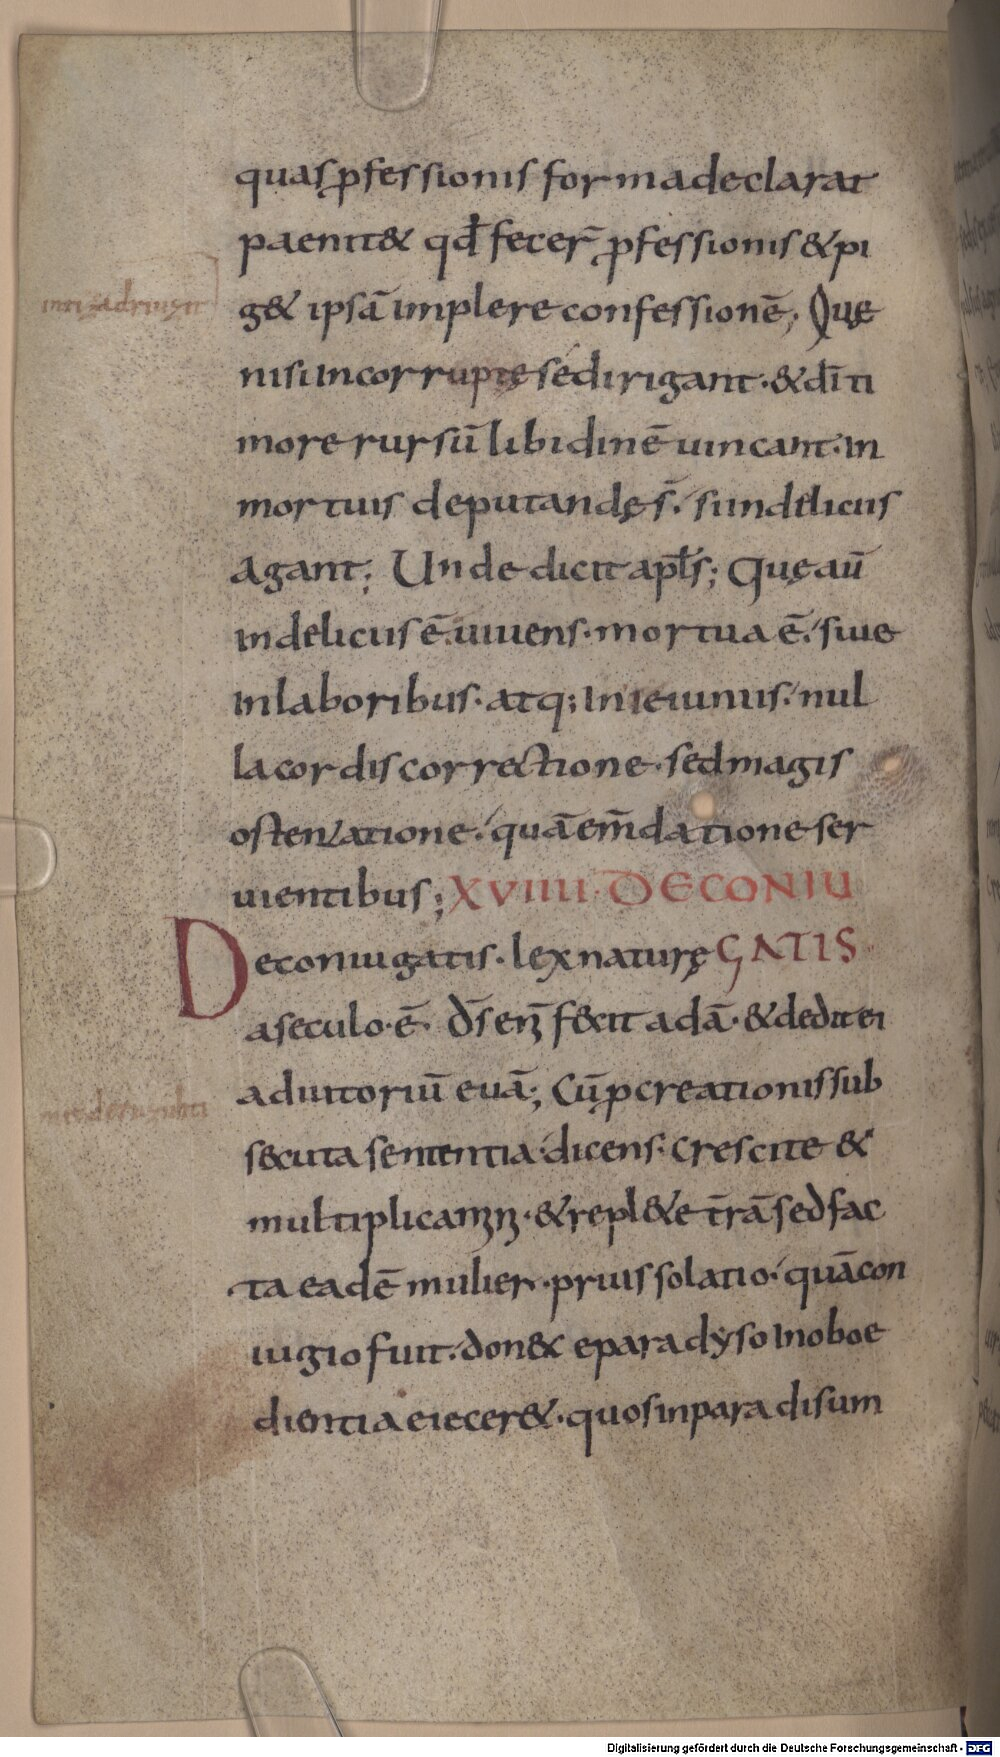 quas ꝓfessionis forma declarat
paenit& qđ fecer̄ ꝓfessionis & pi
g& ipsā implere confessionē; Quę
nisi incorruptę se dirigant · & dī ti
more rursū libidinē uincant · in
mortuis deputandę s̄ · si in deliciis
agant; Unde dicit apł̄s; Quę aū
in deliciis ē uiuens · mortua ē · siue
in laboribus · atq; in ieiuniis · nul
la cordis correctione · sed magis
ostentatione · quā em̄datione ser
uientibus; XVIIII · DE CONIU
De coniugatis · lex naturę GATIS
a seculo · ē · d̄s eni̅ f&cit adā · & dedit ei
adiutoriū euā; Cūq creationis sub
s&cuta sententia · dicens · Crescite &
multiplicamini · & repl&e t̄rā sed fac
ta eadē mulier · prius solatio · quā con
iugio fuit · don& e paradyso inoboe
dientia eiecer& · quos in paradisum